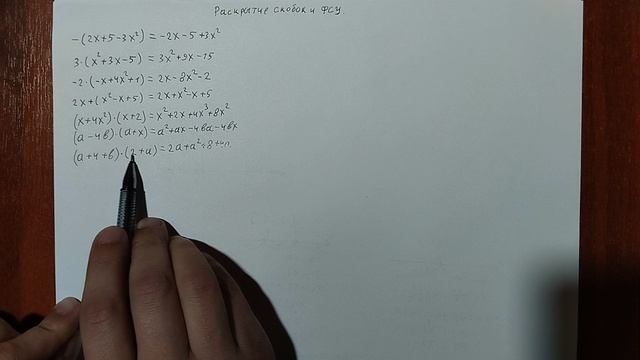 Раскрытие скобок и ФСУ.
-(2x+5-3x²) = -2x-5+3x²
3·(x²+3x-5) = 3x²+9x-15
-2·(-x+4x²+1) = 2x-8x²-2
2x+(x²-x+5) = 2x+x²-x+5
(x+4x²)·(x+2) = x²+2x+4x³+8x²
(a-4b)·(a+x) = a²+ax-4ba-4bx
(a+4+b)·(2+a) = 2a+a²+8+4a